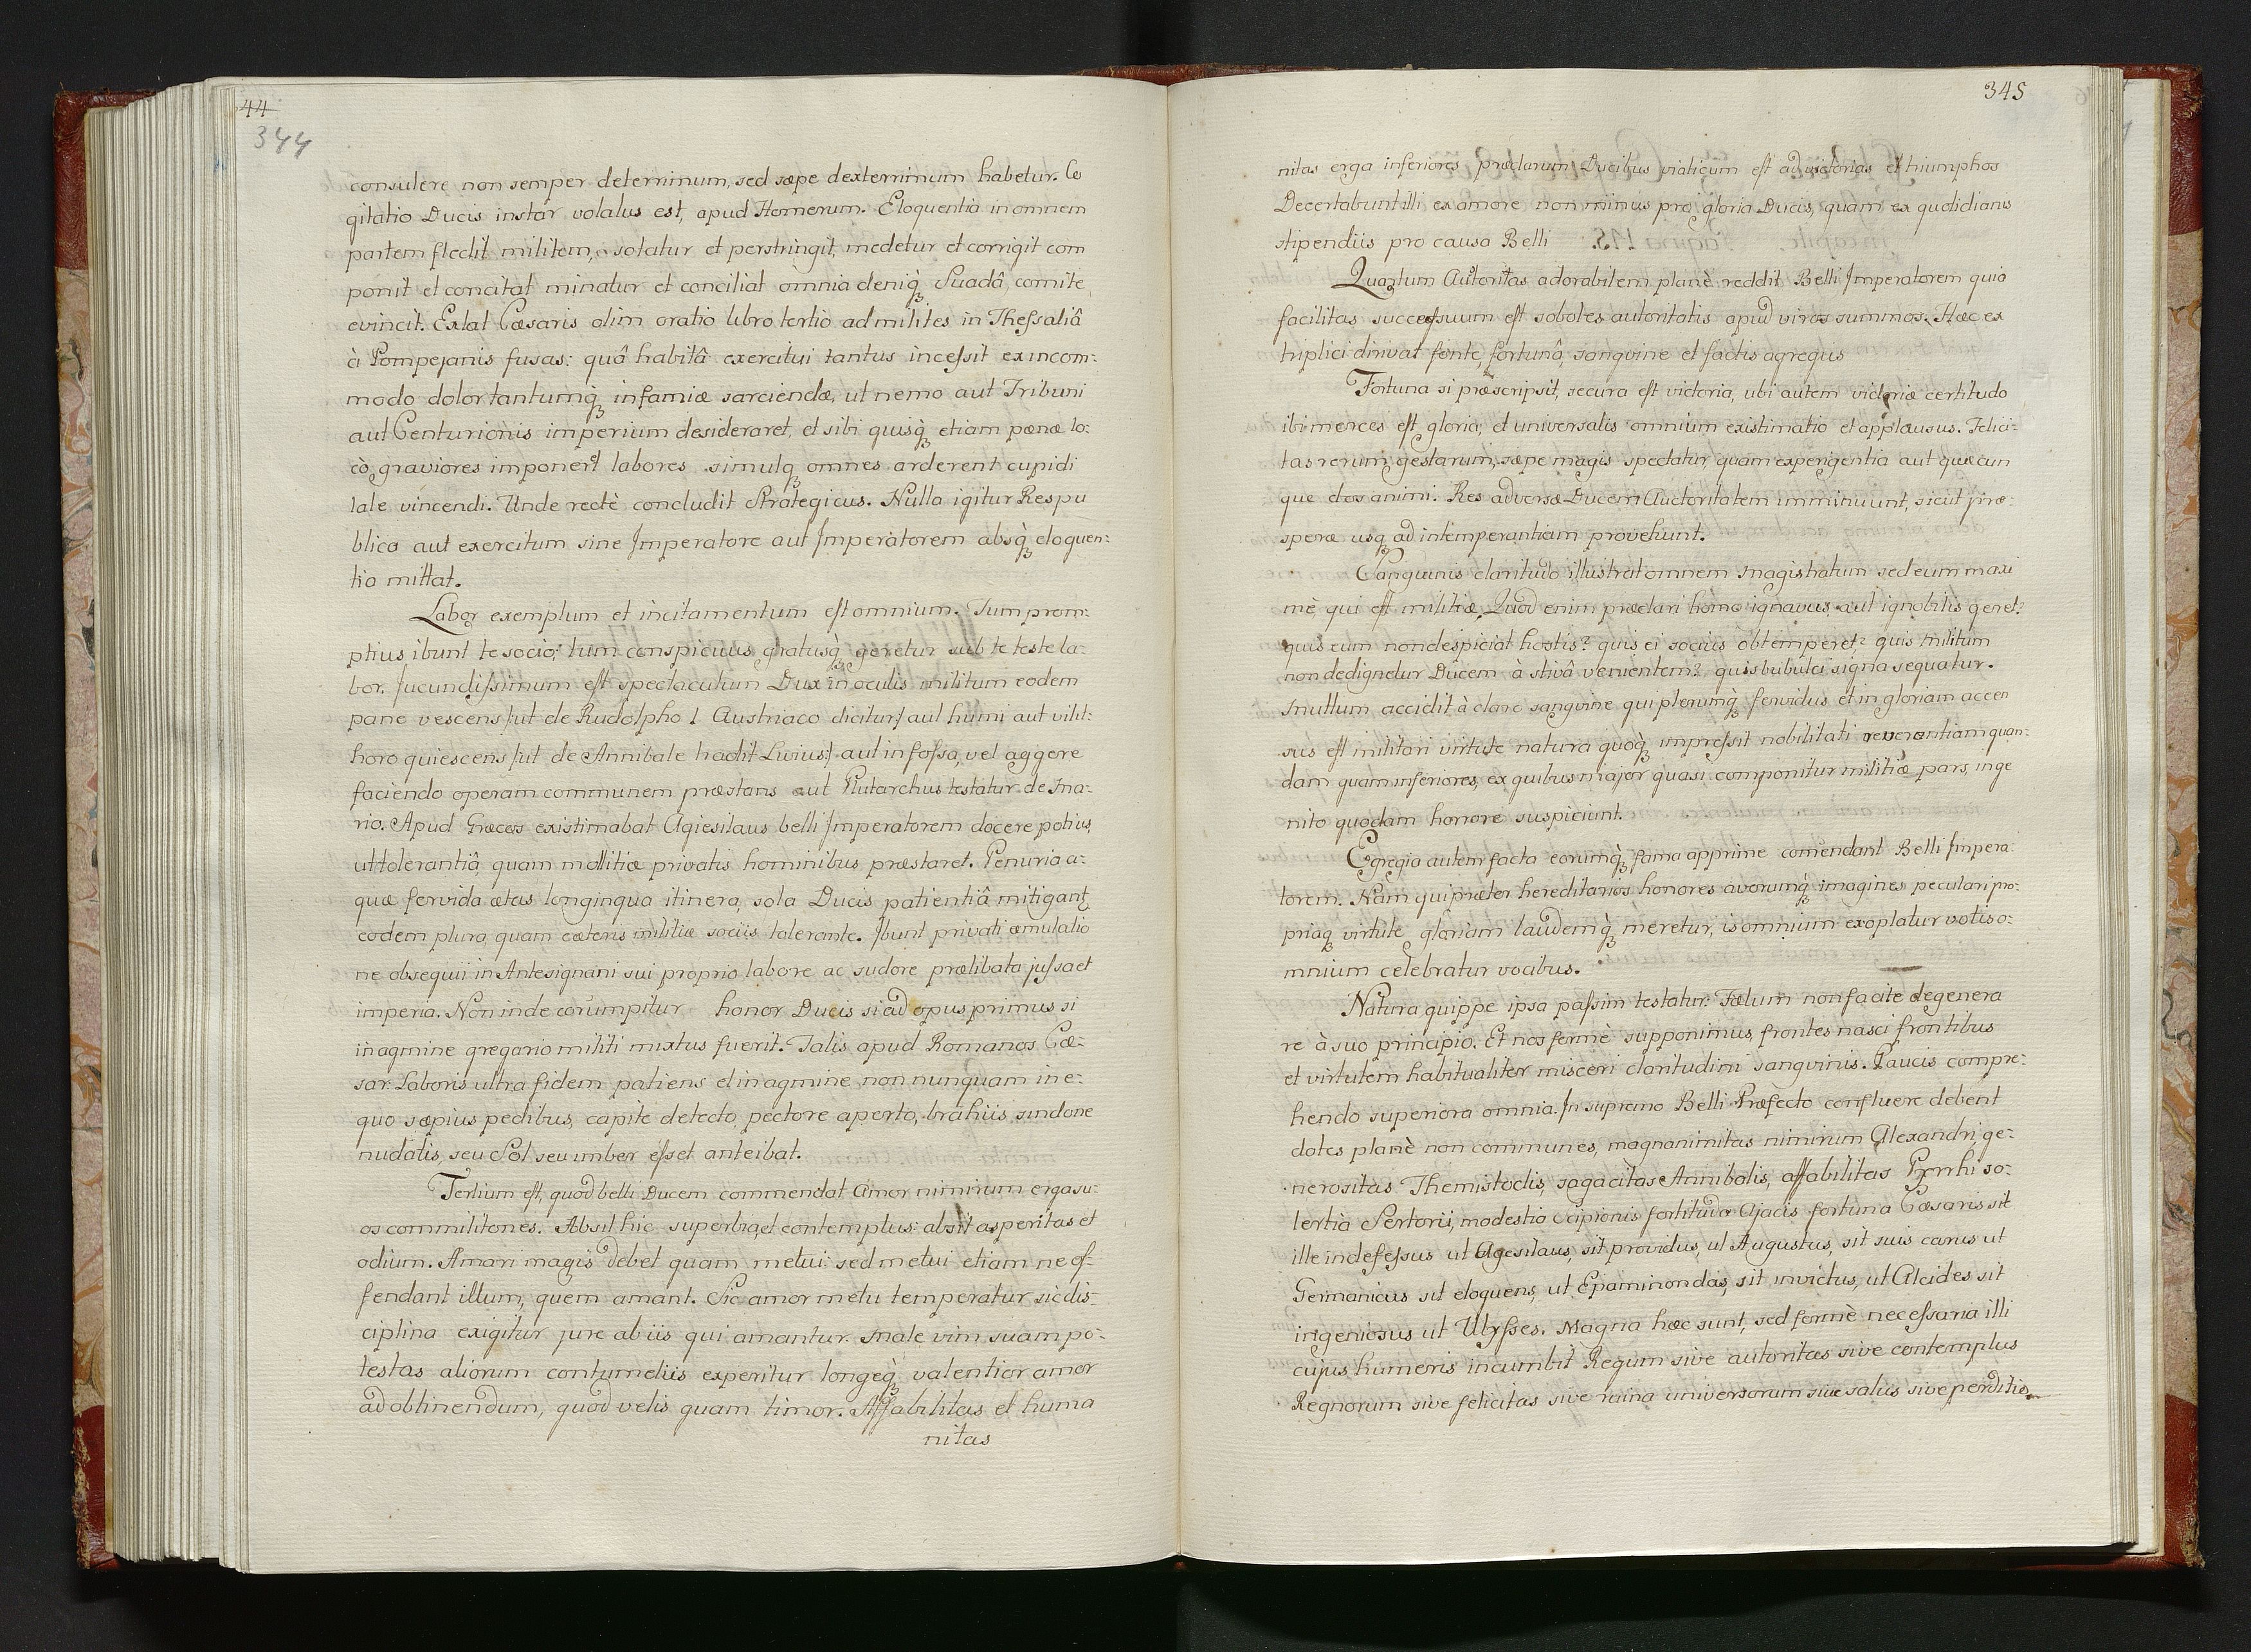 44
344
consulere non semper deterrimum, sed sæpe dexterrimum habetur. Co
gitatio Ducis instar volatus est, apud Homerum. Eloquentia in omnem
partem flectit militem, solatur et perstringit, medetur et corrigit com
ponit et concitat minatur et conciliat omnia deniq̀ꝫ Suadâ, comite
evincit. Extat Cæsaris olim oratio libro tertio ad milites in Theſsaliâ
à Pompejanis fusas: quâ habitâ exercitui tantus inceſsit ex incom:
modo dolor tantumq̀ꝫ infamiæ sarciendæ, ut nemo aut Tribuni
aut Centurionis imperium desideraret, et sibi quisq̀ꝫ etiam pœnæ lo:
cò graviores imponeret labores simulqꝫ omnes arderent cupidi
tate vincendi. Unde rectè concludit Strategicus. Nulla igitur Respu
blica aut exercitum sine Imperatore aut Imperatorem absq̀ꝫ eloquen:
tia mittat.
Labor exemplum et incitamentum eſt omnium. Tum prom:
ptius ibunt te socio; tum conspicuus gratusq̀ꝫ geretur sub te teste la:
bor. Jucundiſsimum eſt spectaculum Dux in oculis militum eodem
pane vescens /:ut de Rudolpho I Austriaco dicitur:/ aut humi aut vilit:
horo quiescens /:ut de Annibale tradit Livius:/ aut in foſsa, vel aggere
faciendo operam communem præstans aut Plutarchus testatur de Ma:
rio. Apud Græcos existimabat Agiesilaus belli Imperatorem docere potius,
ut tolerantiâ quam mollitiæ privatis hominibus præstaret. Penuria a:
quæ fervida ætas longinqua itinera, sola Ducis patientiâ mitigant
eodem plura, quam cæteris militiæ sociis tolerante. Ibunt privati æmulatio
ne obsequii in Antesignani sui proprio labore ac sudore prælibata juſsa et
imperia. Non inde corumpitur honor Ducis si ad opus primus si
in agmine gregario militi mixtus fuerit. Talis apud Romanos Cæ:
sar. Laboris ultra fidem patiens et in agmine non nunquam in e:
quo sæpius pedibus, capite detecto, pectore aperto, brahiis sindone
nudatis, seu Sol seu imber eſset anteibat.
Tertium eſt, quod belli Ducem commendat Amor nimirum erga su:
os commilitones. Absit hic superbia, et contemptus: absit asperitas et
odium. Amari magis debet quam metui: sed metui etiam ne of-
fendant illum, quem amant. Sic amor metu temperatur sic dis-
ciplina exigitur jure ab iis qui amantur. Male vim suam po-
testas aliorum contumeliis experitur longeq̀ꝫ valentior amor
ad obtinendum, quod velis quam timor. Affabilitas et huma
nitas
345
nitas erga inferiores præclarum Ducibus viaticum eſt ad victorias et triumphos
Decertabunt illi ex amore non minus pro gloria Ducis, quam ex quotidianis
stipendiis pro causa Belli
Quantum Autoritas adorabilem planè reddit Belli Imperatorem quia
facilitas succeſsuum eſt soboles autoritatis apud viros summos. Hæc ex
triplici dirivat fonte, fortunâ, sanguine et factis agregiis
Fortuna si præscripsit, secura eſt victoria, ubi autem victoriæ certitudo
ibi merces eſt gloria, et universalis omnium existimatio et applausus. Felici:
tas rerum gestarum, sæpe magis spectatur, quam experigentia aut quæcun
que dos animi. Res adversæ Ducem Auctoritatem imminuunt, sicut præ:
speræ usqꝫ ad intemperantiam provehunt.
Sanguinis claritudo illustrat omnem Magistratum sed eum maxi
mè qui eſt militiæ. Quod enim præclari homo ignavus aut ignobilis geret?
quis eum non despiciat hostis? quis ei socius obtemperet? quis militum
non dedignetur Ducem à stivâ venientem? quis bubulci signa sequatur.
Multum accidit à claro sanguine qui plerumq̀ꝫ fervidus et in gloriam accen
sus eſt militari virtute natura quoq̀ꝫ impreſsit nobilitati reverantiam quan:
dam quam inferiores, ex quibus major quasi componitur militiæ pars, inge
nito quodam honore suspiciunt.
Egregia autem facta eorumq̀ꝫ fama apprime comendant Belli Impera:
torem. Nam qui præter hereditarios honores avorumq̀ꝫ imagines peculiari pro:
priaqꝫ virtute gloriam laudemq̀ꝫ meretur, is omnium exoptatur votis o:
mnium celebratur vocibus.
Natura quippe ipsa paſsim testatur: Fælum non facile degenera
re à suo principio. Et nos fermè supponimus, frontes nasci frontibus
et virtutem habitualiter misceri claritudini sanguinis. Paucis compre:
hendo superiora omnia. In supremo Belli Præfecto confluere debent
dotes planè non communes, magnanimitas nimirum Alexandri, ge:
nerositas Themistoclis, sagacitas Annibalis, affabilitas Pyrrhi so:
lertia Sertorii, modestia Scipionis fortitudo Ajacis fortuna Cæsaris sit
ille indefeſsus ut Agesilaus, sit providus, ut Augustus, sit suis carus ut
Germanicus sit eloquens, ut Epaminondas, sit invictus, ut Alcides sit
ingeniosus ut Ulyſses. Magna hæc sunt, sed fermè neceſsaria illi
cujus humeris incumbit Regum sive autoritas sive contemptus
Regnorum sive felicitas sive ruina universorum sive salus sive perditio